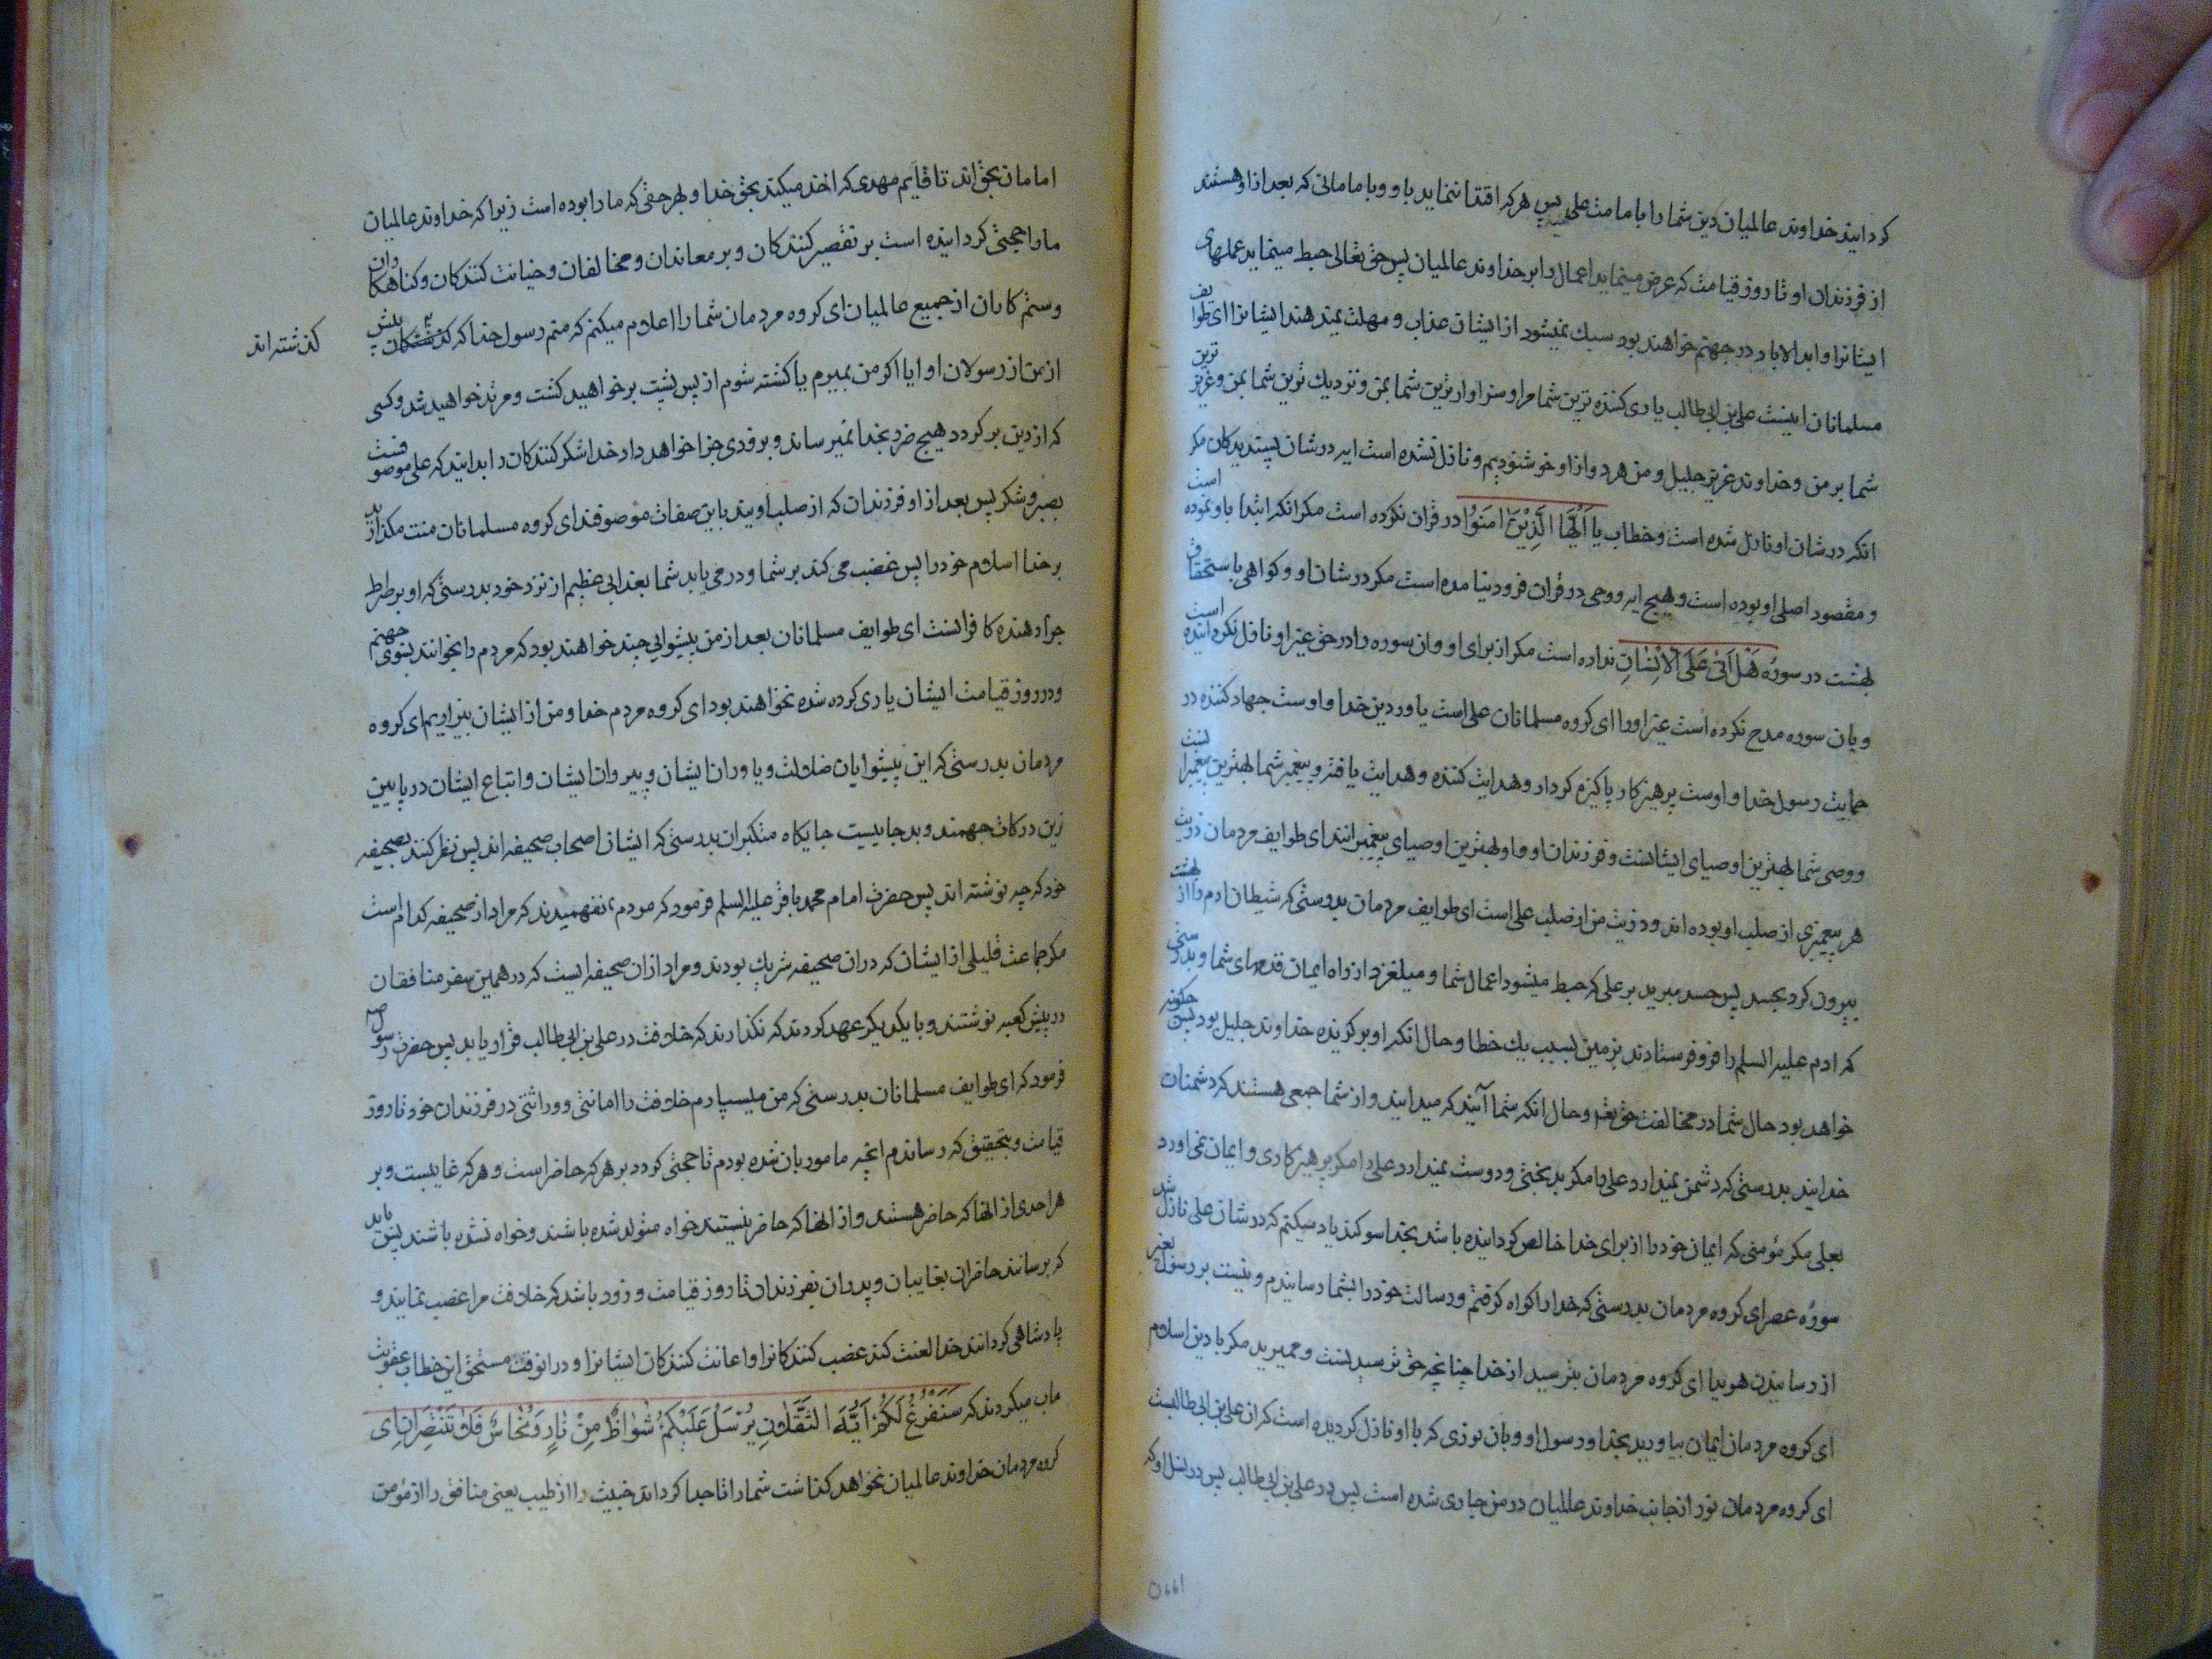 کردانید خداوند عالمیان دین شما را بامامت علی پس هر که اقتدا ننماید باو و با مامانی که بعد ازاو هستند
از فرزندان او تا روز قیامت که عرض مینماید اعمال را بر خداوند عالمیان پس حق تعالی حبط مینماید عملهای
ایشانرا و ابدالاباد در جهنم خواهند بود سبك نمیشود از ایشان عذاب و مهلت نمیدهند ایشانرا ای طوایف
مسلمانان اینست علی بن ابی طالب یاری کننده ترین شما مرا و سزاوارترین شما بمن و نزدیك ترین شما بمن و عزیزترین
شما بر من و خداوند عزیز جلیل و من هر دو ازاو خوشنودیم و نازل نشده است ایه در شان پسندیدکان مکر
انکه در شان او نازل شده است و خطاب یا اَیُّهَا الَّذِیْنَ امَنوُا در قران نکرده است مکر انکه ابتدا باو نموده است
و مقصود اصلی او بوده است و هیچ ایه و وحی در قران فرود نیامده است مکر در شان او و کواهی باستحقاق
بهشت در سوره هَلْ اَتیٰ عَلَی الْاِنْسٰانِ نداده است مکر از برای او وان سوره را در حق غیر او نازل نکردانیده است
و بان سوره مدح نکرده است غیر اورا ای کروه مسلمانان علی است یاور دین خدا و اوست جهاد کننده در
حمایت رسول خدا و اوست پرهیزکار پاکیزه کردار و هدایت کننده و هدایت یافته و پیغمبر شما بهترین پیغمبرانست
و وصی شما بهترین اوصیای ایشانست و فرزندان او و او بهترین اوصیای پیغمبرانند ای طوایف مردمان ذریت
هر پیغمبری از صلب او بوده اند و ذریت من از صلب علی است ای طوایف مردمان بدرستی که شیطان ادم را از بهشت
بیرون کرد بحسد پس حسد مبرید بر علی که حبط میشود اعمال شما و میلغزد از راه ایمان قدمهای شما و بدرستی
که ادم علیه السلم را فرو فرستادند بزمین بسبب یك خطا و حال انکه او برکزیده خداوند جلیل بود پس چکونه
خواهد بود حال شما در مخالفت حق تعم و حال انکه شما آنید که میدانید و از شما جمعی هستند که دشمنان
خدایند بدرستی که دشمن نمیدارد علی را مکر بدبختی و دوست نمیدارد علی را مکر پرهیزکاری و ایمان نمی اورد
بعلی مکر مؤمنی که ایمان خود را از برای خدا خالص کردانیده باشد بخدا سوکند یاد میکنم که در شان علی نازل شد
سورهٔ عصر ای کروه مردمان بدرستی که خدا را کواه کرفتم و رسالت خود را بشما رسانیدم و نیست بر رسول بغیر
از رسانیدن هویدا ای کروه مردمان بترسید از خدا چنانچه حق ترسیدنست و ممیرید مکر با دین اسلام
ای کروه مردمان ایمان بیاورید بخدا و رسول او و بان نوری که با او نازل کردیده است که ان علی بن ابی طالبست
ای کروه مردمان نور از جانب خداوند عالمیان در من جاری شده است پس در علی بن ابی طالب پس در نسل او که
امامان بحق اند تا قایم مهدی که اخذ میکند بحق خدا و بهر حقی که ما را بوده است زیرا که خداوند عالمیان
ما را حجتی کردانیده است بر تقصیر کنندکان و بر معاندان و مخالفان و خیانت کنندکان و کناهکاران
و ستم کاران از جمیع عالمیان ای کروه مردمان شما را اعلام میکنم که منم رسول خدا که پیش
کذشته اند
از من از رسولان او ایا اکر من بمیرم یا کشته شوم از پس پشت بر خواهید کشت و مرتد خواهید شد و کسی
که از دین برکردد هیچ ضرر بخدا نمیرساند و بزودی جزا خواهد داد خدا شکر کنندکان را بدانید که علی موصوفست
بصبر و شکر پس بعد از او فرزندان که از صلب اویند باین صفات موصوفند ای کروه مسلمانان منت مکذارید
بر خدا اسلام خود را پس غضب می کند بر شما و در می یابد شما را بعذابی عظیم از نزد خود بدرستی که او بر صراط
جزا دهنده کافرانست ای طوایف مسلمانان بعد از من پیشوایی چند خواهند بود که مردم را بخوانند بسوی جهنم
و در روز قیامت ایشان یاری کرده شده نخواهند بود ای کروه مردم خدا و من از ایشان بیزاریم ای کروه
مردمان بدرستی که این پیشوایان ضلالت و یاوران ایشان و پیروان ایشان و اتباع ایشان در پایین
ترین درکات جهنمند و بد جاییست جایکاه متکبران بدرستی که ایشان اصحاب صحیفه اند پس نظر کنند بصحیفه
خود که چه نوشته اند پس حضرت امام محمد باقر علیه السلم فرمود که مردم نفهمیدند که مراد از صحیفه کدام است
مکر جماعت قلیلی از ایشان که دران صحیفه شریك بودند و مراد ازان صحیفه ایست که در همین سفر منافقان
در پیش کعبه نوشتند و با یکدیکر عهد کردند که نکذارند که خلافت در علی بن ابی طالب قرار یابد پس حضرت رسول ص
فرمود که ای طوایف مسلمانان بدرستی که من میسپارم خلافت را امانتی و وراثتی در فرزندان خود تا روز
قیامت و بتحقیق که رساندم انچه مامور بان شده بودم تا حجتی کردد بر هر که حاضر است و هر که غایبست و بر
هر احدی از انها که حاضر هستند و از انها که حاضر نیستند خواه متولد شده باشند و خواه نشده باشند پس باید
که برسانند حاضران بغایبان و پدران بفرزندان تا روز قیامت و زود باشد که خلافت مرا غصب نمایند و
پادشاهی کردانند خدا لعنت کند غصب کنندکانرا و اعانت کنندکان ایشانرا و درانوقت مستحق این خطاب عقوبت
ماب میکردند که سَنَفْرُغُ لَکُمْ اَیُّهَ الثَّقَلٰانِ یُرْسَلُ عَلَیْکُمٰا شُوٰاظٌ مِنْ نٰارٍ وَ نُحٰاسٌ فَلٰا تَنْتَصِرٰانِ ای
کروه مردمان خداوند عالمیان نخواهد کذاشت شما را تا جدا کرداند خبیث را از طیب یعنی منافق را از مؤمن